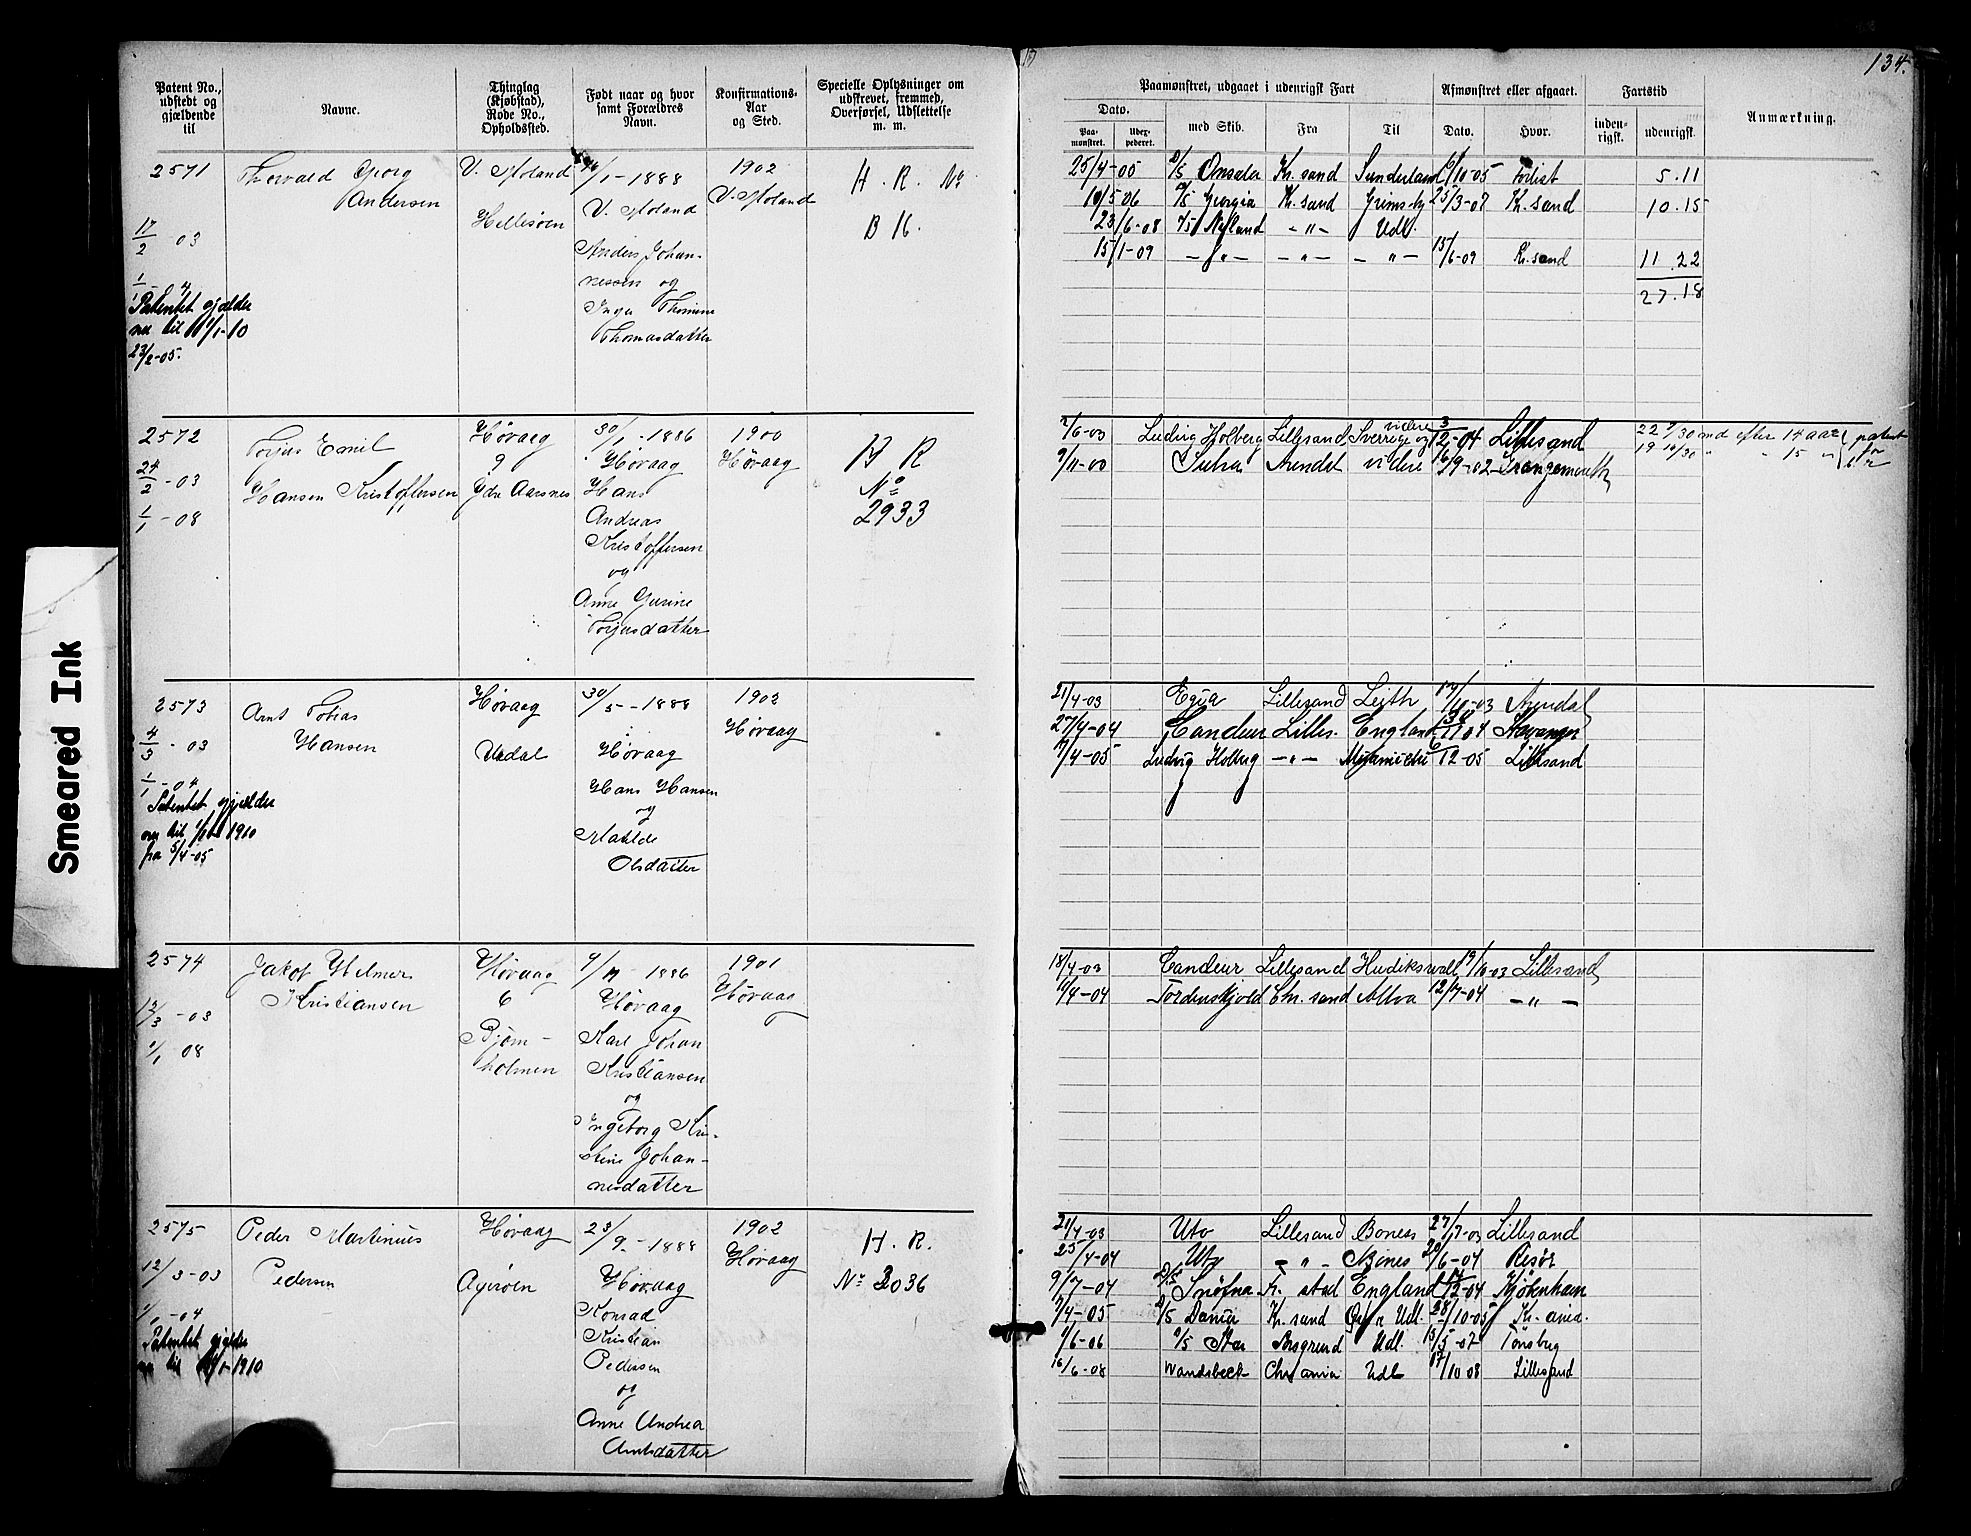 134.
Smeared Ink
Patent No., udstedt og gjældende til
Navne.
Thinglag (Kjøbstad), Rode No., Opholdssted.
Født naar og hvor samt Forældres Navn.
Konfirmations-Aar og Sted.
Specielle Oplysninger om udskrevet, fremmed, Overførsel, Udslettelse m. m.
Paamønstret, udgaaet i udenrigsk Fart
Afmønstret eller afgaaet.
Fartstid
Anmærkning.
Dato.
Paamønstret.
Uderpederet.
med Skib.
Fra
Til
Dato.
Hvor.
indenrigsk.
udenrigsk.
2571
17/2 03
Patentet gjælder
nu til 1/1-10
23/2-05.
Thorvald Georg
Andersen
V. Moland
Hellesøen
1/1-1888
V. Moland
Anders Johan-
nessen og
Inga Thomine
Thomasdatter
1902
V. Moland
H. R. No
B 16.
25/4-05 Onsala Kr. sand Sunderland 6/10-05 Forlist 5.11
10/5 06 Georgia Kr. sand Grimsby 25/3-07 Kr. sand 10.15
23/6-08 Nyland -"- Udl.
15/1-09 -"- -"- -"- 15/6-09 Kr. sand 11.22
27.18
2572
24/2-03
1/1-08
Torjus Emil
Hansen Kristoffersen
Høvaag
9
Ydre Aarsnes
30/1-1886
Høvaag
Hans
Andreas
Kristoffersen
og
Anne Gurine
Torjusdatter
1900
Høvaag
H R
No
2933
2/6-03 Ludvig Holberg Lillesand Sverrige og videre 3/12-04 Lillesand 22 9/30 md efter 14 aar patent
9/11-00 Sutra Arendal videre 16/9-02 Grangemouth 19 10/30 " - 15 " for
2573
4/3-03
1/1-04
Patentet gjælder
nu til 1/1 1910
fra 5/4-05
Arnt Tobias
Hansen
Høvaag
Uedal
30/5-1888
Høvaag
Hans Hansen
og
Matilde
Olsdatter
1902
Høvaag
21/4-03 Egua Lillesand Leith 17/10-03 Arendal
27/4-04 Candeur Lilles. England 04 Stavanger
7/4-05 Ludvig Holberg -"- Miramichi 6/12-05 Lillesand
2574
13/3-03
1/1 08
Jakob Hilmer
Kristiansen
Høvaag
6
Bjørn-
holmen
1886
Høvaag
Karl Johan
Kristiansen
og
Ingeborg Kri-
stine Johan-
nesdatter
1901
Høvaag
18/4-03 Candeur Lillesand Hudiksvall 19/10-03 Lillesand
11/4-04 Tordenskjold Chr. sand Alloa 12/7-04 -"-
2575
12/3-03
1/1-04
Patentet gjælder
nu til 1/1-1910
Peder Martinius
Pedersen
Høvaag
Agerøen
23/9-1888
Høvaag
Konrad
Kristian
Pedersen
og
Anne Andrea
Arntsdatter
1902
Høvaag
H. R.
No 3036
21/4-03 Uto Lillesand Boness 27/7-03 Lillesand
25/4-04 Uto -"- Bones 20/6-04 Risør
9/7-04 Snöfna Fr. stad England 12-04 Kjøbnhavn
7/4-05 Dania Kr. sand Udl. 28/10-05 Kr. ania.
7/6-06 Star Porsgrund Udl. 13/5-07 Tønsberg
16/6-08 Wandsbeck Chr ania Udl 17/10 08 Lillesand